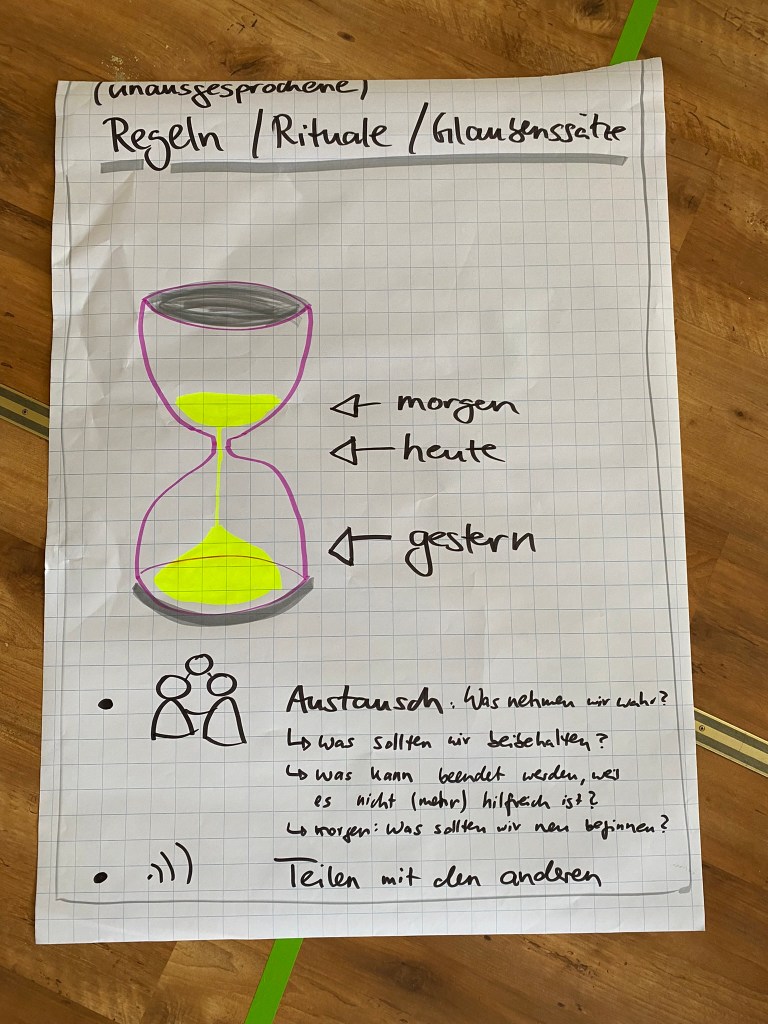 (unausgesprochene)
Regeln / Rituale / Glaubenssätze
morgen
heute
gestern
• Austausch: Was nehmen wir wahr?
↳ Was sollten wir beibehalten?
↳ was kann beendet werden, weil
es nicht (mehr) hilfreich ist?
↳ morgen: Was sollten wir neu beginnen?
• Teilen mit den anderen